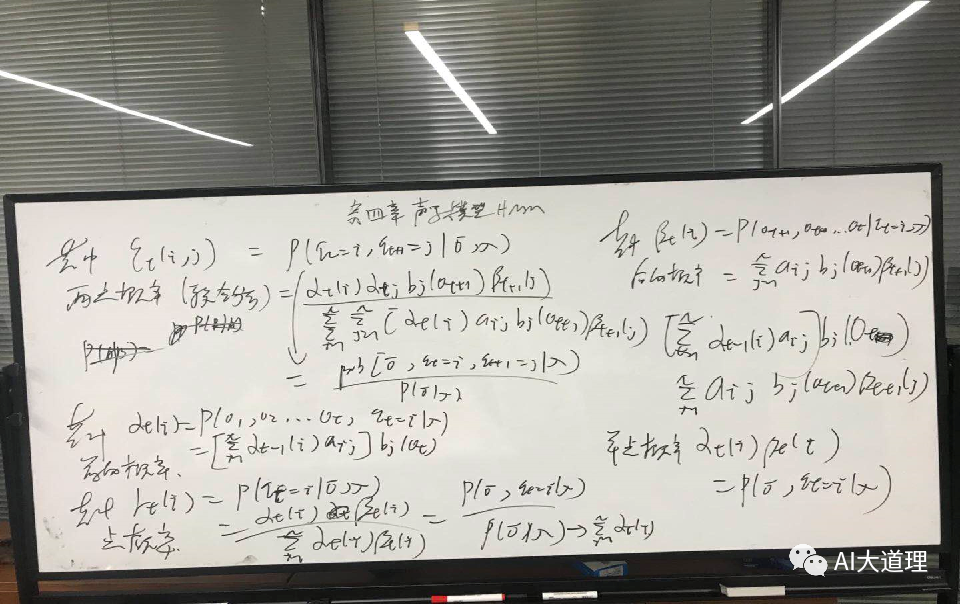 第四章 声学模型 HMM
其中 ξt(i,j) = P(qt=i, qt+1=j | ō,λ)
两点概率 = αt(i) αtj bj(ot+1) βt+1(j)
Σ i=1 N Σ j=1 N [αt(i) aij bj(ot+1) βt+1(j)
= prob[ō, qt=i, qt+1=j|λ)
P(ō|λ)
其中 αt(i)=P(o1,o2 ... ot, qt=i|λ)
=[Σ i=1 N αt-1(i) aij] bj(ot)
前向概率.
其中 γt(i) = P(qt=i|ō,λ) = P(ō, qt=i|λ)
点概率. = αt(i) βt(i)
Σ i=1 N αt(i) βt(i) P(ō|λ) → Σ i=1 N αt(i)
其中 βt(i) = P(ot+1, ot+2 ... ot | qt=i, λ)
后向概率 = Σ j=1 N aij bj(ot+1) βt+1(j)
[Σ i=1 N αt-1(i) aij] bj(Ot)
Σ j=1 N aij bj(ot+1) βt+1(j)
单点概率 αt(i) βt(i)
= P(ō, qt=i|λ)
AI大道理